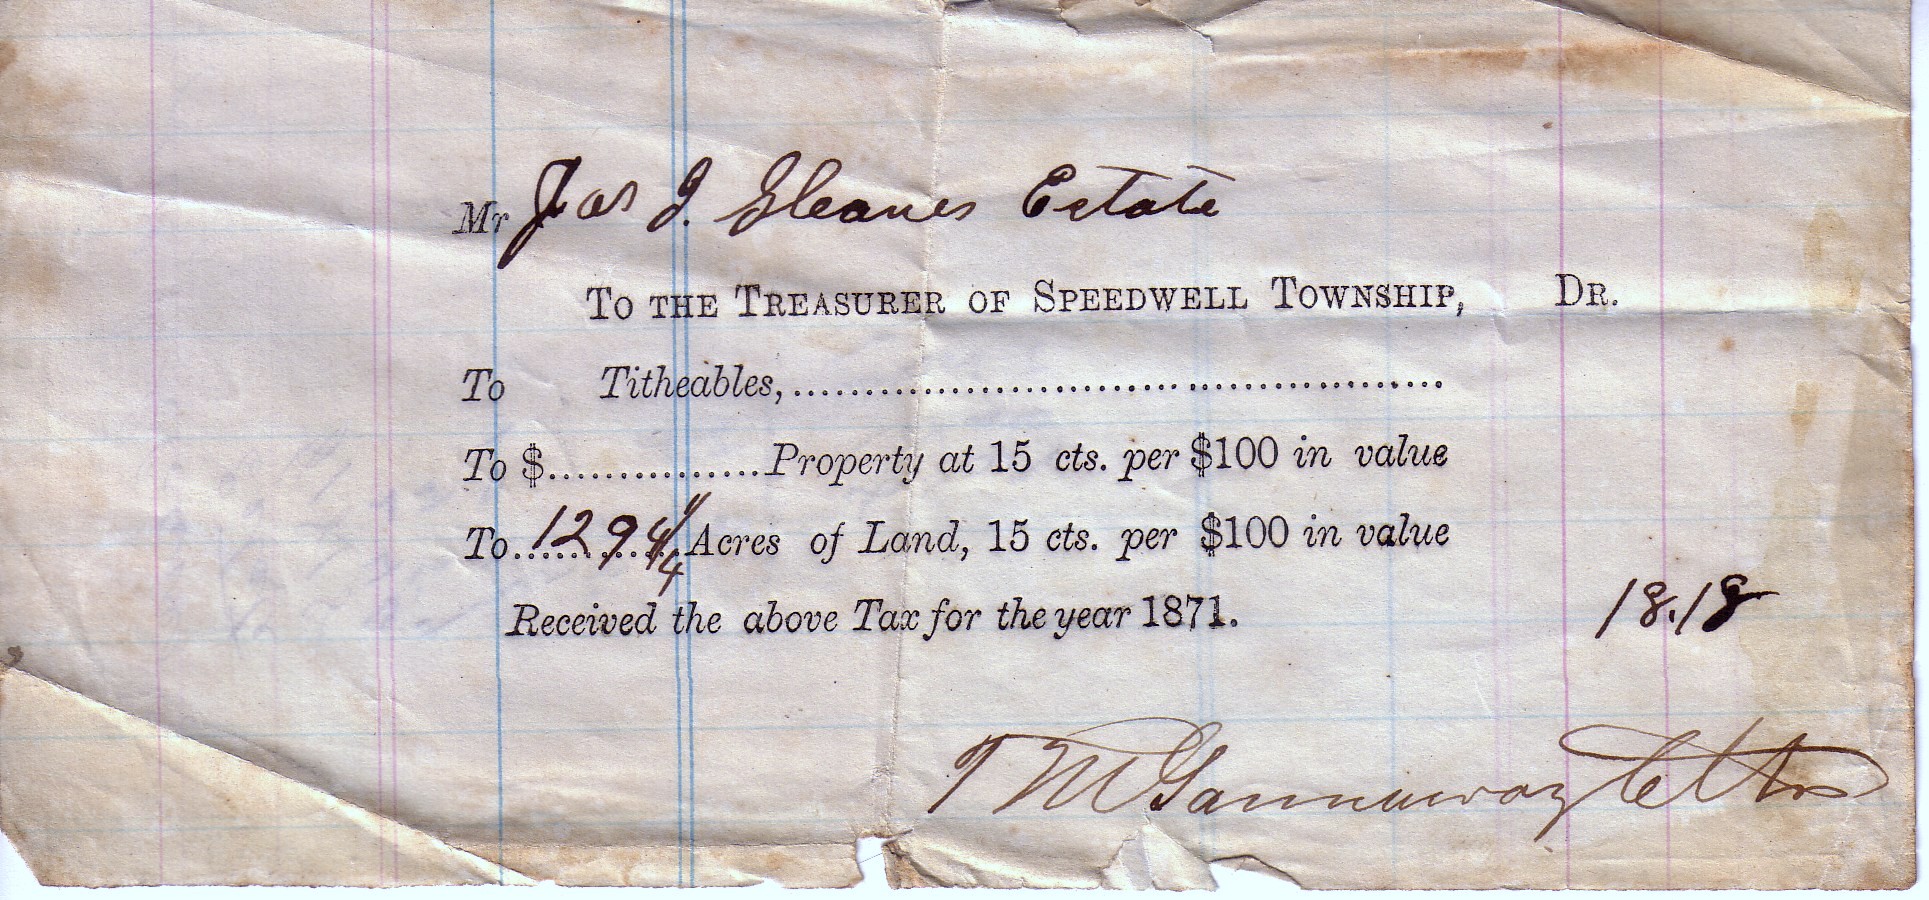 Mr Jas T. Gleaves Estate
To the Treasurer of Speedwell Township, Dr.
To Titheables,..................................................
To $...............Property at 15 cts. per $100 in value
To 1294 1/4 Acres of Land, 15 cts. per $100 in value
Received the above Tax for the year 1871. 18.18
T M Gannaway